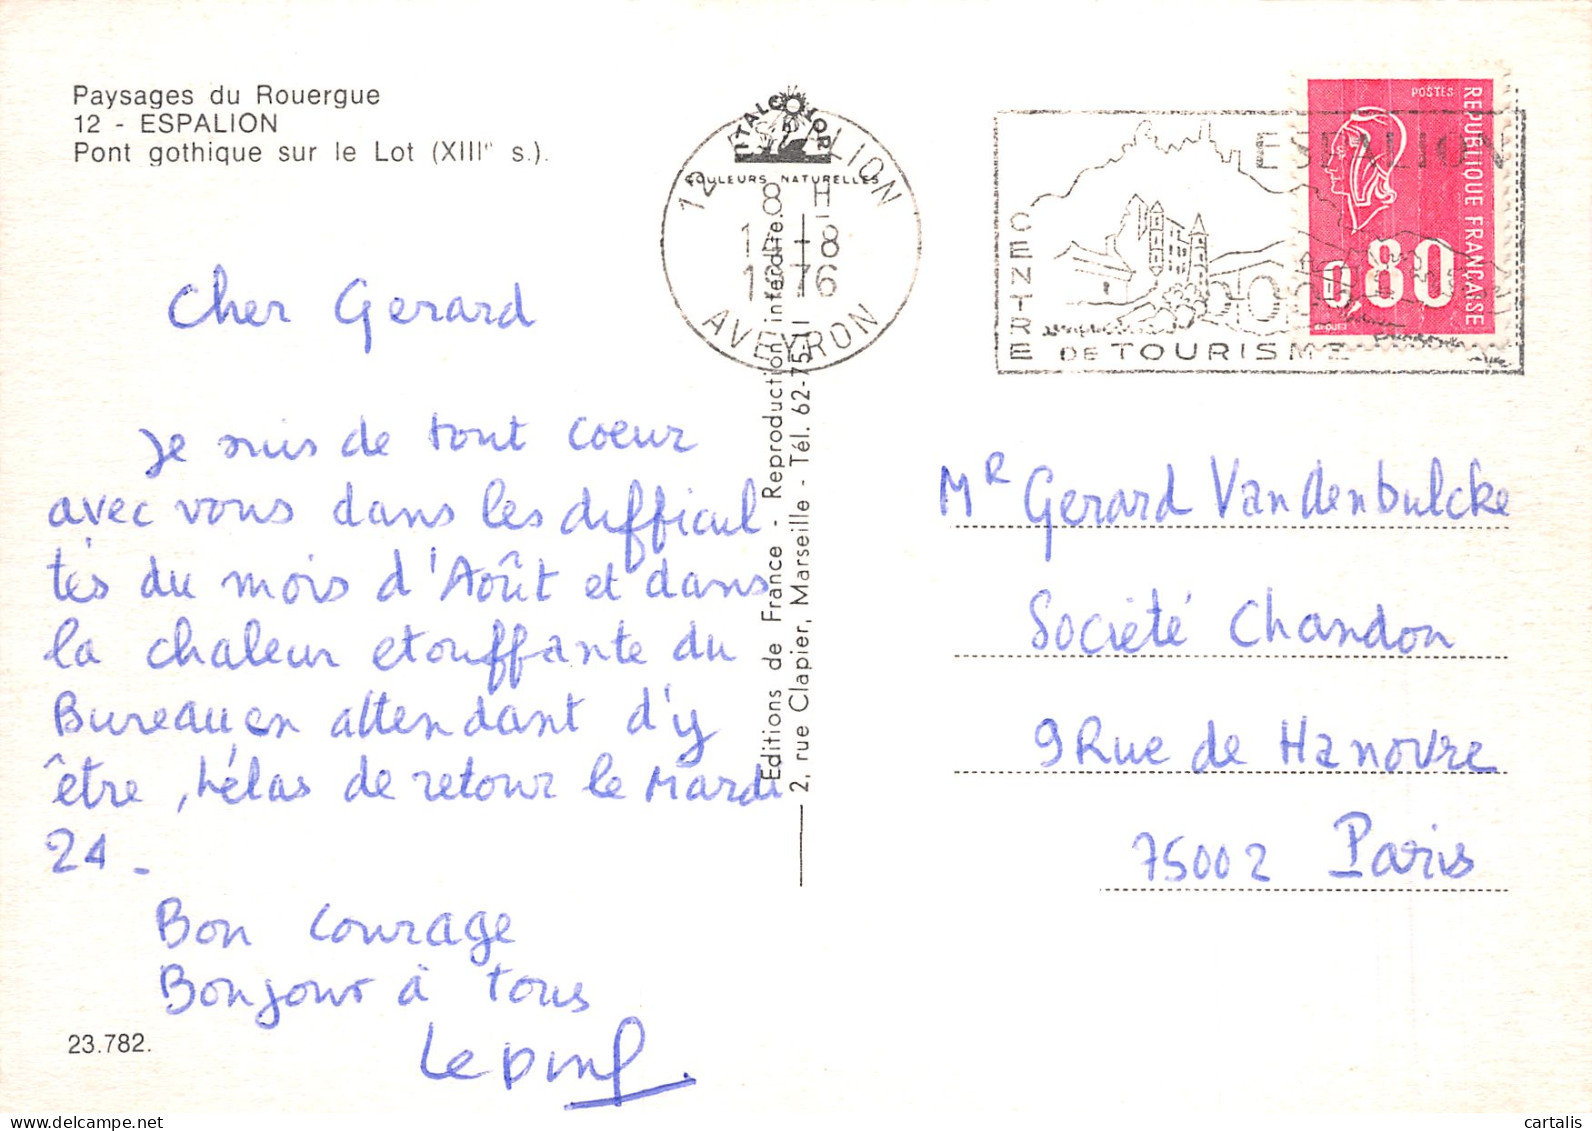 Paysages du Rouergue
12 - ESPALION
Pont gothique sur le Lot (XIIIe s.).
ITALCOLOR
COULEURS NATURELLES
12 ESPALION
8 H
1 -8
1976
AVEYRON
ESPALION
CENTRE DE TOURISME
POSTES
REPUBLIQUE FRANÇAISE
0,80
Cher Gerard
Je suis de tout coeur
avec vous dans les difficul
tés du mois d'Août et dans
la chaleur etouffante du
Bureau en attendant d'y
être, hélas de retour le Mardi
24 -
Bon courage
Bonjour à tous
23.782.
Editions de France - Reproduction interdite.
2, rue Clapier, Marseille - Tél. 62-75-11
Mr Gerard Vandenbulcke
Société Chandon
9 Rue de Hanovre
75002 Paris
cartalis